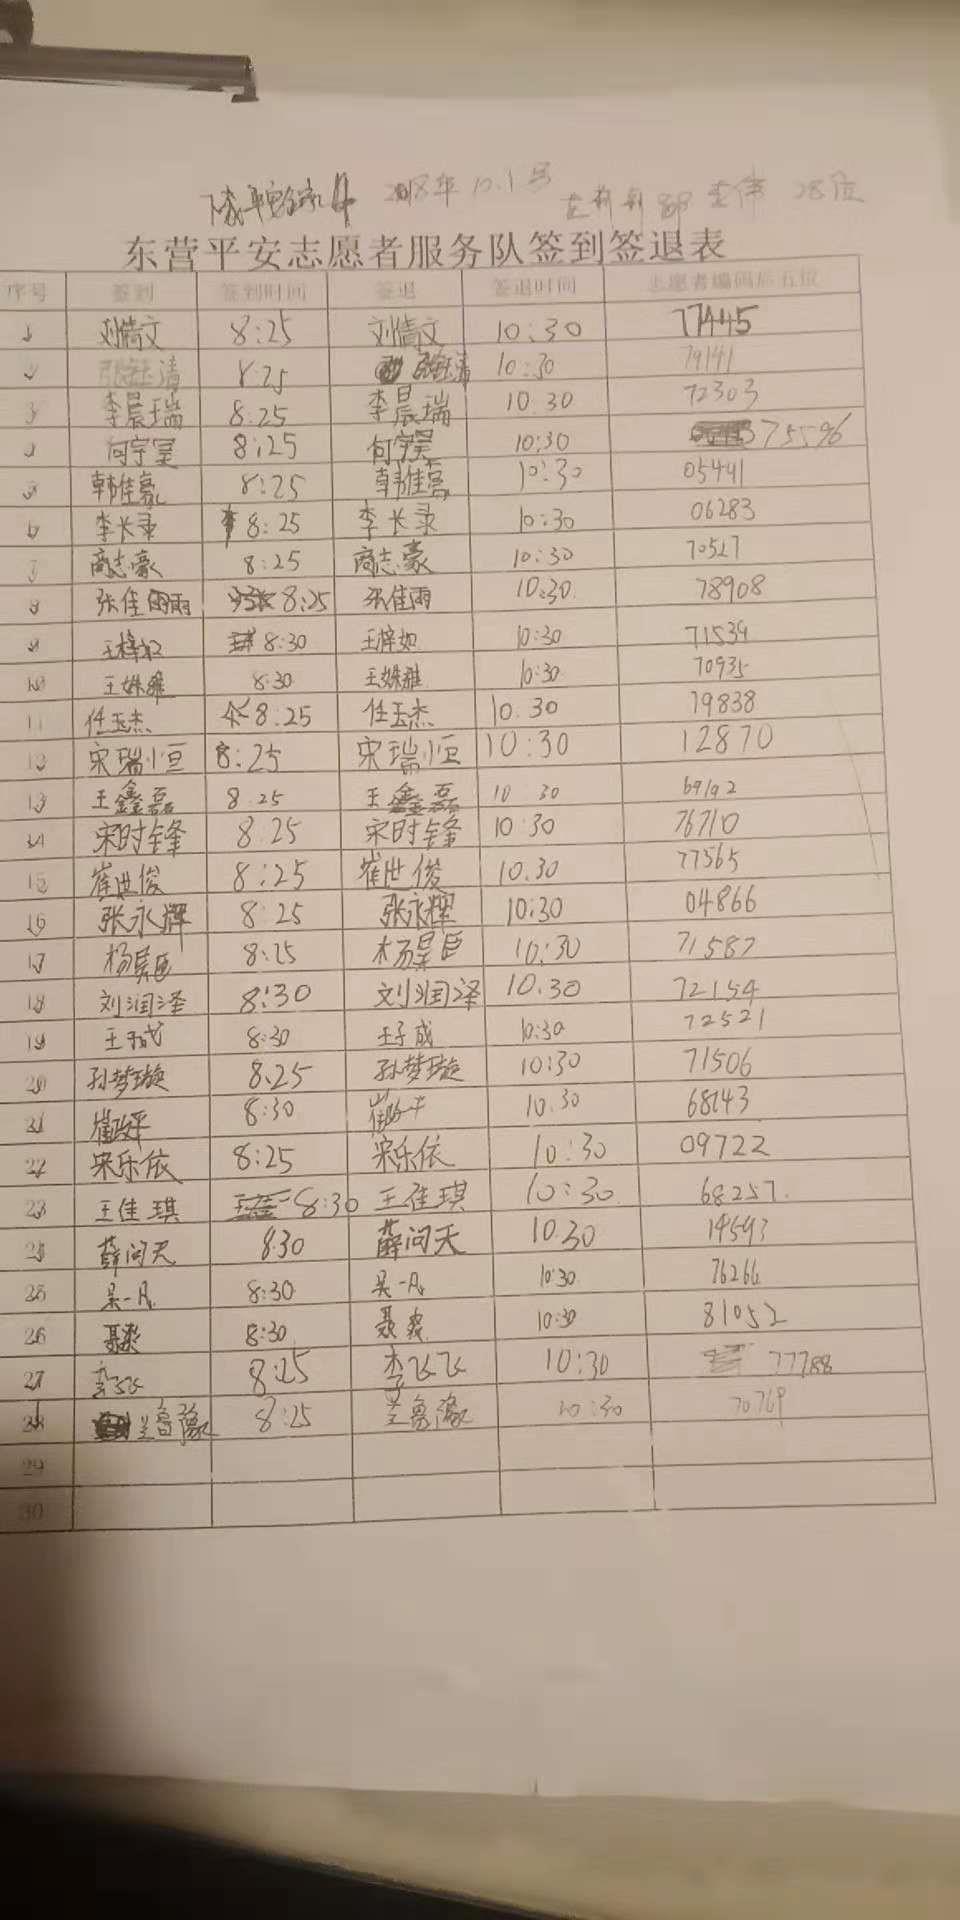 2018年10.1号 28位
东营平安志愿者服务队签到签退表
序号 签到 签到时间 签退 签退时间 志愿者编码后五位
1 刘倩文 8:25 刘倩文 10:30 77445
2 张钰清 8:25 张钰清 10:30 79141
3 李晨瑞 8.25 李晨瑞 10.30 72303
4 何宇昊 8:25 何宇昊 10:30 75596
5 韩佳豪 8:25 10:30 05441
6 李长录 8:25 李长录 10:30 06283
7 商志豪 8:25 商志豪 10:30 70527
8 张佳雨 8:25 张佳雨 10:30 78908
9 8:30 王梓如 10:30 71539
10 王姝雅 8:30 王姝雅 10:30 70935
11 任玉杰 8:25 任玉杰 10.30 79838
12 宋瑞恒 8:25 宋瑞恒 10:30 12870
13 王鑫磊 8.25 王鑫磊 10 30 69192
14 宋时锋 8.25 宋时锋 10:30 76710
15 崔世俊 8:25 崔世俊 10.30 77565
16 张永辉 8:25 张永辉 10:30 04866
17 8:25 10:30 71587
18 刘润泽 8:30 刘润泽 10.30 72154
19 王子成 8:30 王子成 10:30 72521
20 孙梦璇 8.25 孙梦璇 10:30 71506
21 8:30 10.30 68143
22 宋乐依 8:25 宋乐依 10:30 09722
23 王佳琪 8:30 王佳琪 10:30 68257
24 薛问天 8.30 薛问天 10.30 14593
25 吴一凡 8:30 吴一凡 10:30 76266
26 聂爽 8:30 聂爽 10:30 81052
27 李飞飞 8:25 李飞飞 10:30 77788
28 兰鲁豫 8:25 10:30 70769
29
30